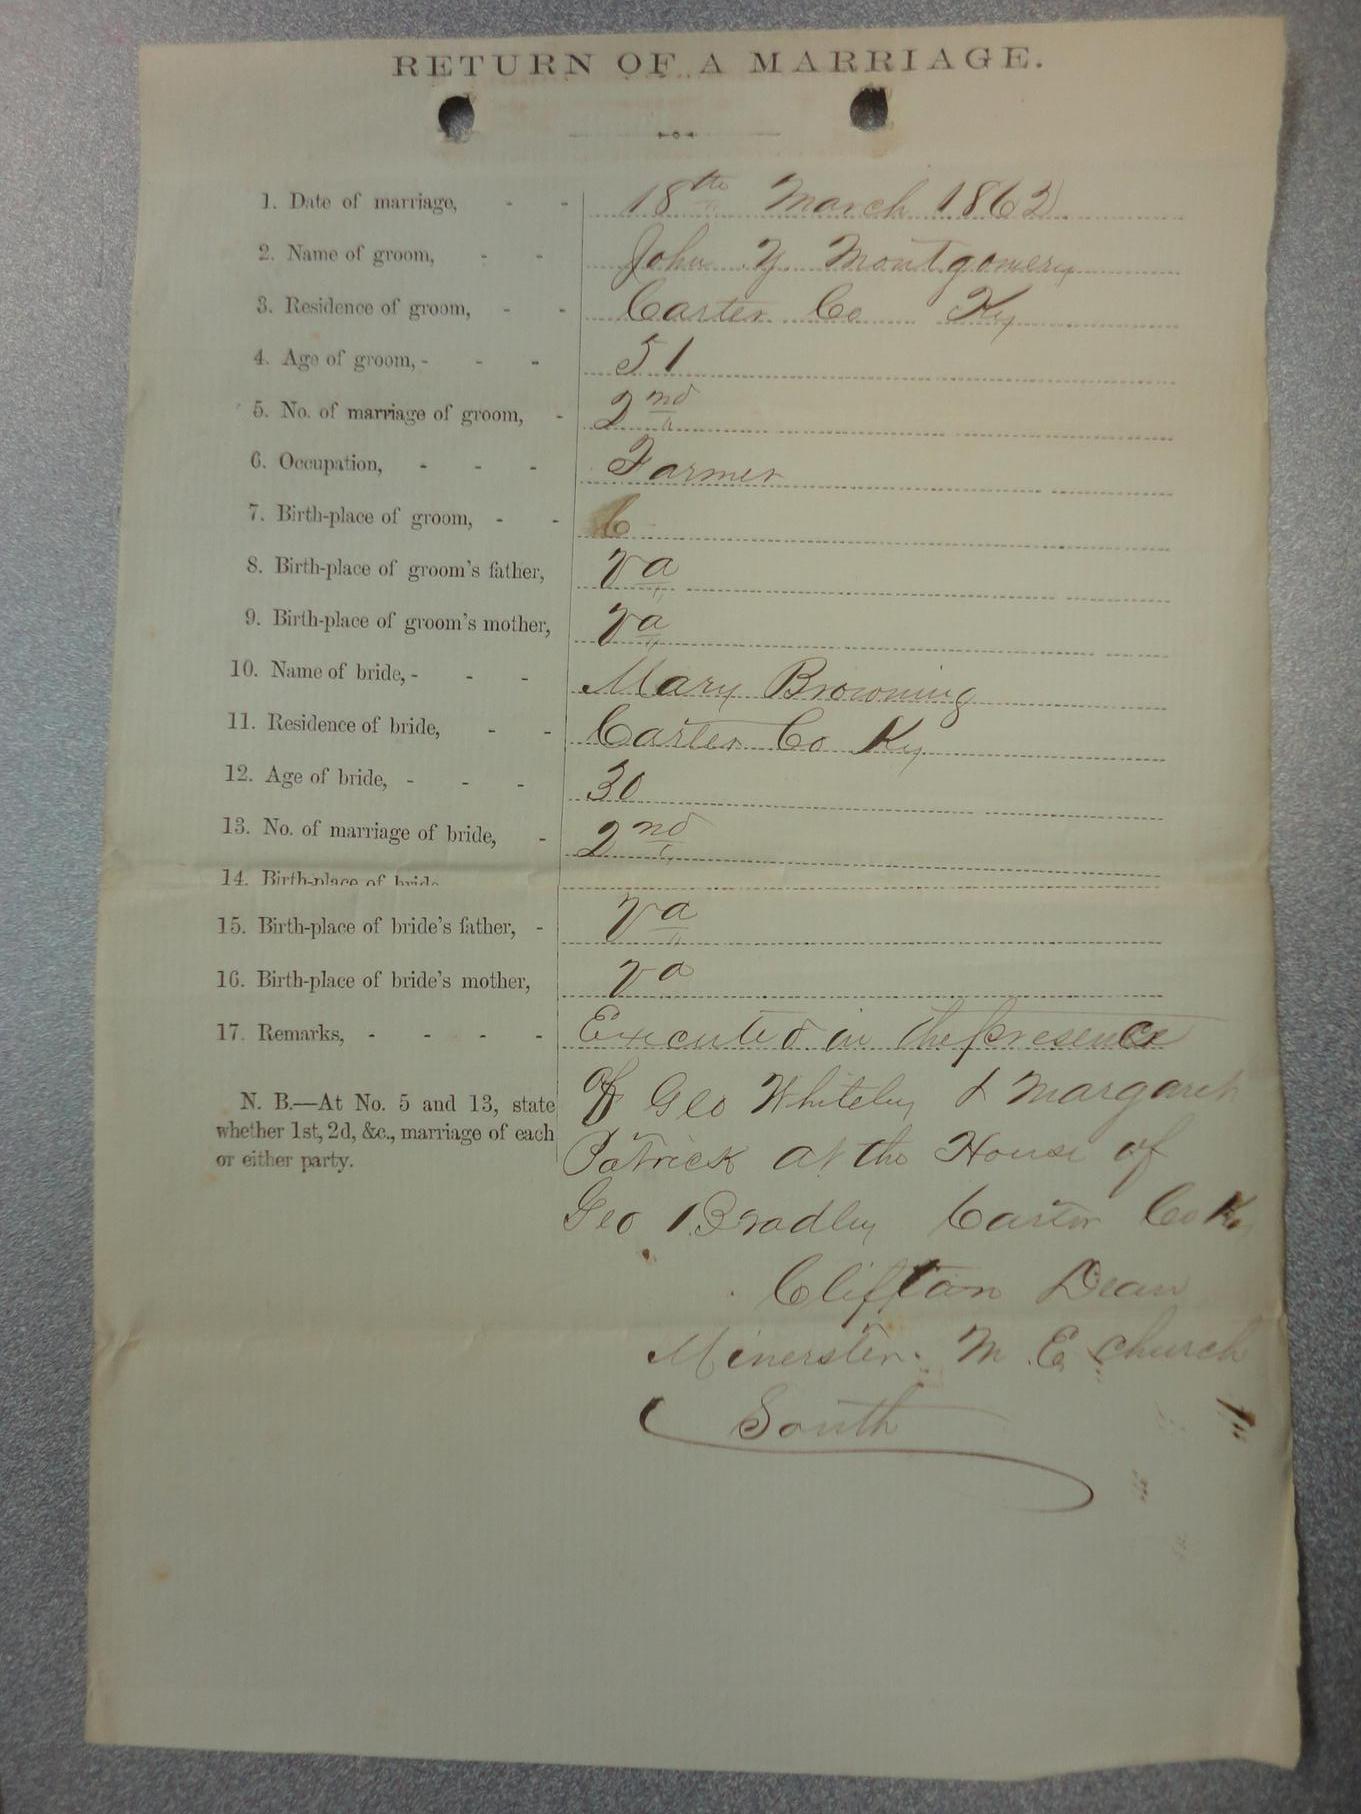 RETURN OF A MARRIAGE.
1. Date of marriage, - - 18th March 1862
2. Name of groom, - - John Y Montgomery
3. Residence of groom, - - Carter Co Ky
4. Age of groom, - - - 51
5. No. of marriage of groom, - 2nd
6. Occupation, - - - Farmer
7. Birth-place of groom, - - C
8. Birth-place of groom's father, Va
9. Birth-place of groom's mother, Va
10. Name of bride, - - - Mary Browning
11. Residence of bride, - - Carter Co Ky
12. Age of bride, - - - 30
13. No. of marriage of bride, - 2nd
14. Birth-place of bride
15. Birth-place of bride's father, - Va
16. Birth-place of bride's mother, Va
17. Remarks, - - - - Executed in the presence
of Geo Whiteley & Margaret
Patrick at the House of
Geo Bradley Carter Co Ky
N. B.—At No. 5 and 13, state
whether 1st, 2d, &c., marriage of each
or either party.
Clifton Dean
Minerster. M. E church
South